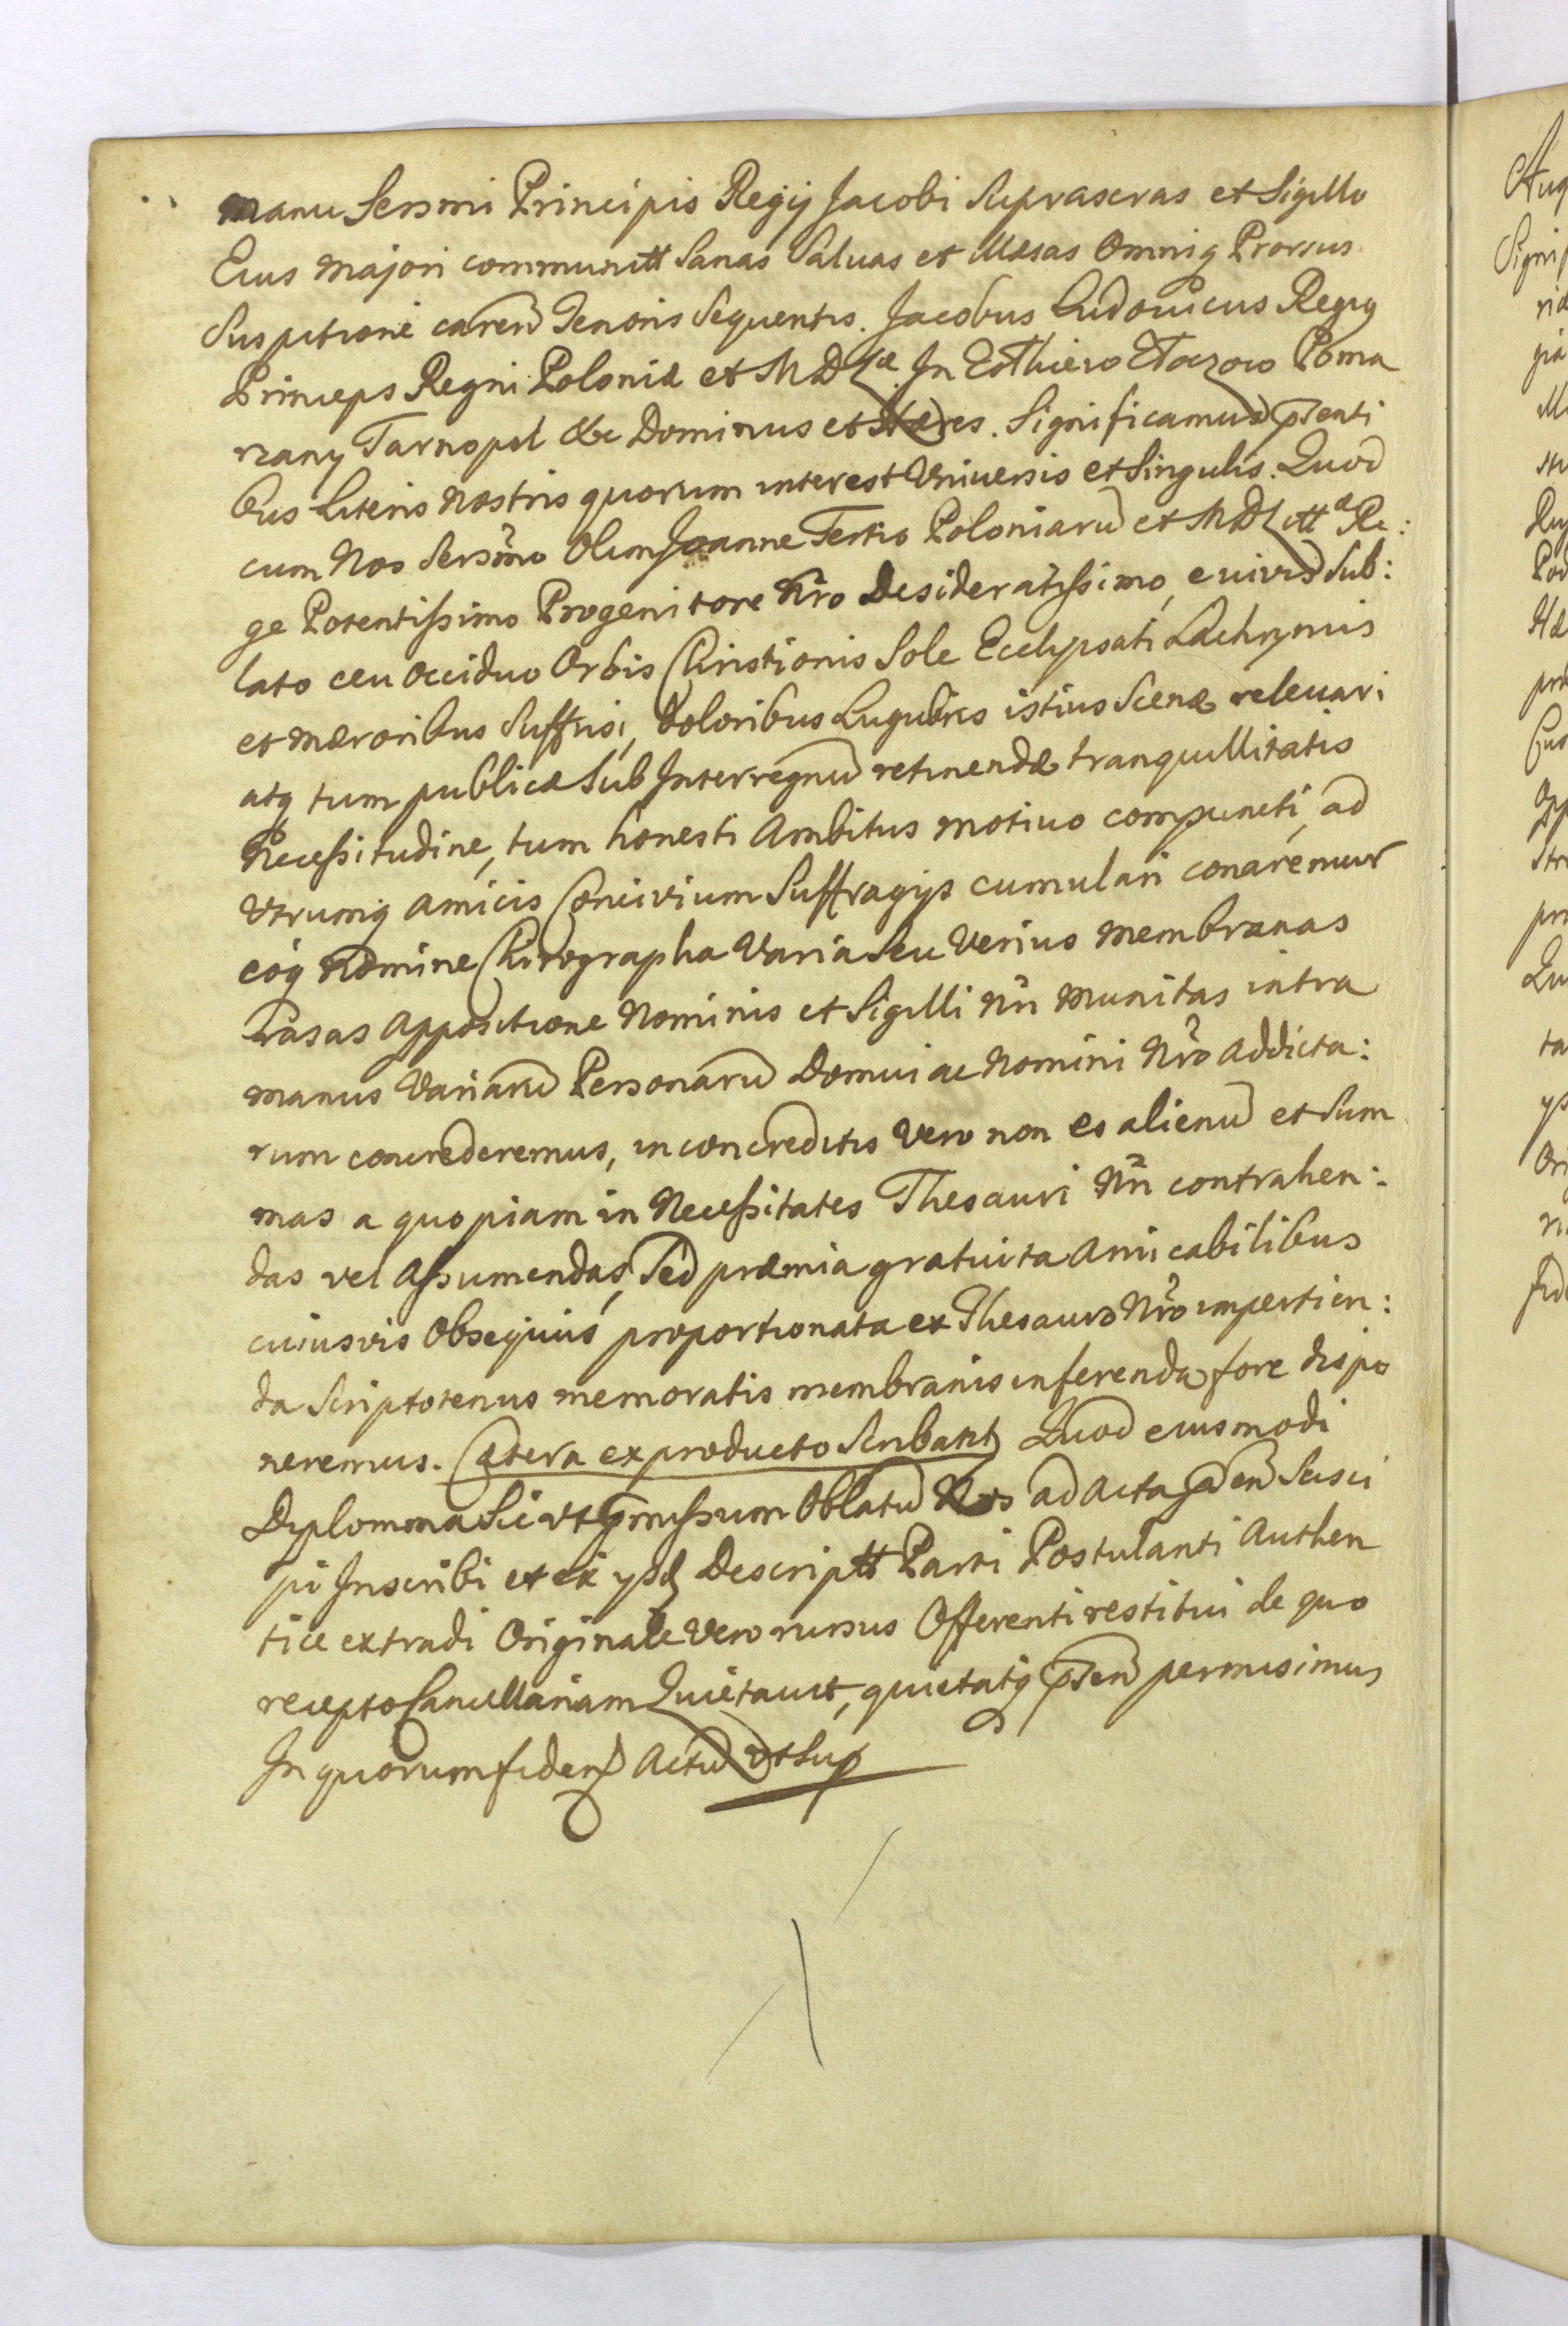 manu Serñmi Principis Regij Jacobi Suprascras et Sigillo
Eius majori communitt Sanas Saluas et Illæsas Omniq Prorsus
Suspitione caren̄ Tenoris Sequentis. Jacobus Ludouicus Regig
Princeps Regni Poloniæ et M D L æ. In Złoczow Poma
rzany Tarnopol &c Dominus et Hæres. Significamus p̄senti
bus Literis Nostris quorum interest Vniuersis et Singulis. Quod
cum Nos Sers̃mo Olim Joanne Tertio Poloniarū et M D Litt æ Re:
ge Potentissimo Progenitore Nr̃o Desideratissimo, e viuis Sub:
lato ceu Occiduo Orbis Christionis Sole Ecclypsati Lachrymis
et mæroribus Suffusi, Doloribus Lugubris istius Scenæ releuari
atq tum publicæ Sub Interregnū retinendæ tranquillitatis
Necessitudine, tum honesti Ambitus motiuo compuncti, ad
Vtrumq amicis Conciuium Suffragijs cumulari conaremur
eoq Nomine Chirographa Varia Seu Verius membranas
rasas Appositione Nominis et Sigilli Nr̃i Munitas intra
manus Variarū Personarū Domui ac Nomini Nr̃o Addicta:
rum concrederemus, in concreditis Vero non es alienū et Sum
mas a quopiam in Necessitates Thesauri Nr̃i contrahen:
das vel Assumendas, Sed præmia gratuita Amicabilibus
cuiusvis Obsequijs proportionata ex Thesauro Nr̃o impertien:
da Scriptotenus memoratis membranis inferenda fore dispo
neremus. Cætera ex producto Scribant Quod eiusmodi
Diplomma Sic vt p̄missum Oblatū Nos ad Acta p̄sen̄ Susci
pi Inscribi et ex ysd Descriptt Parti Postulanti Authen
tice extradi Originale Vero rursus Offerenti restitui de quo
recepto Cancellariam Quietauit, quietatq p̄sen̄ permisimus
In quorum fidem Actū vt Sup